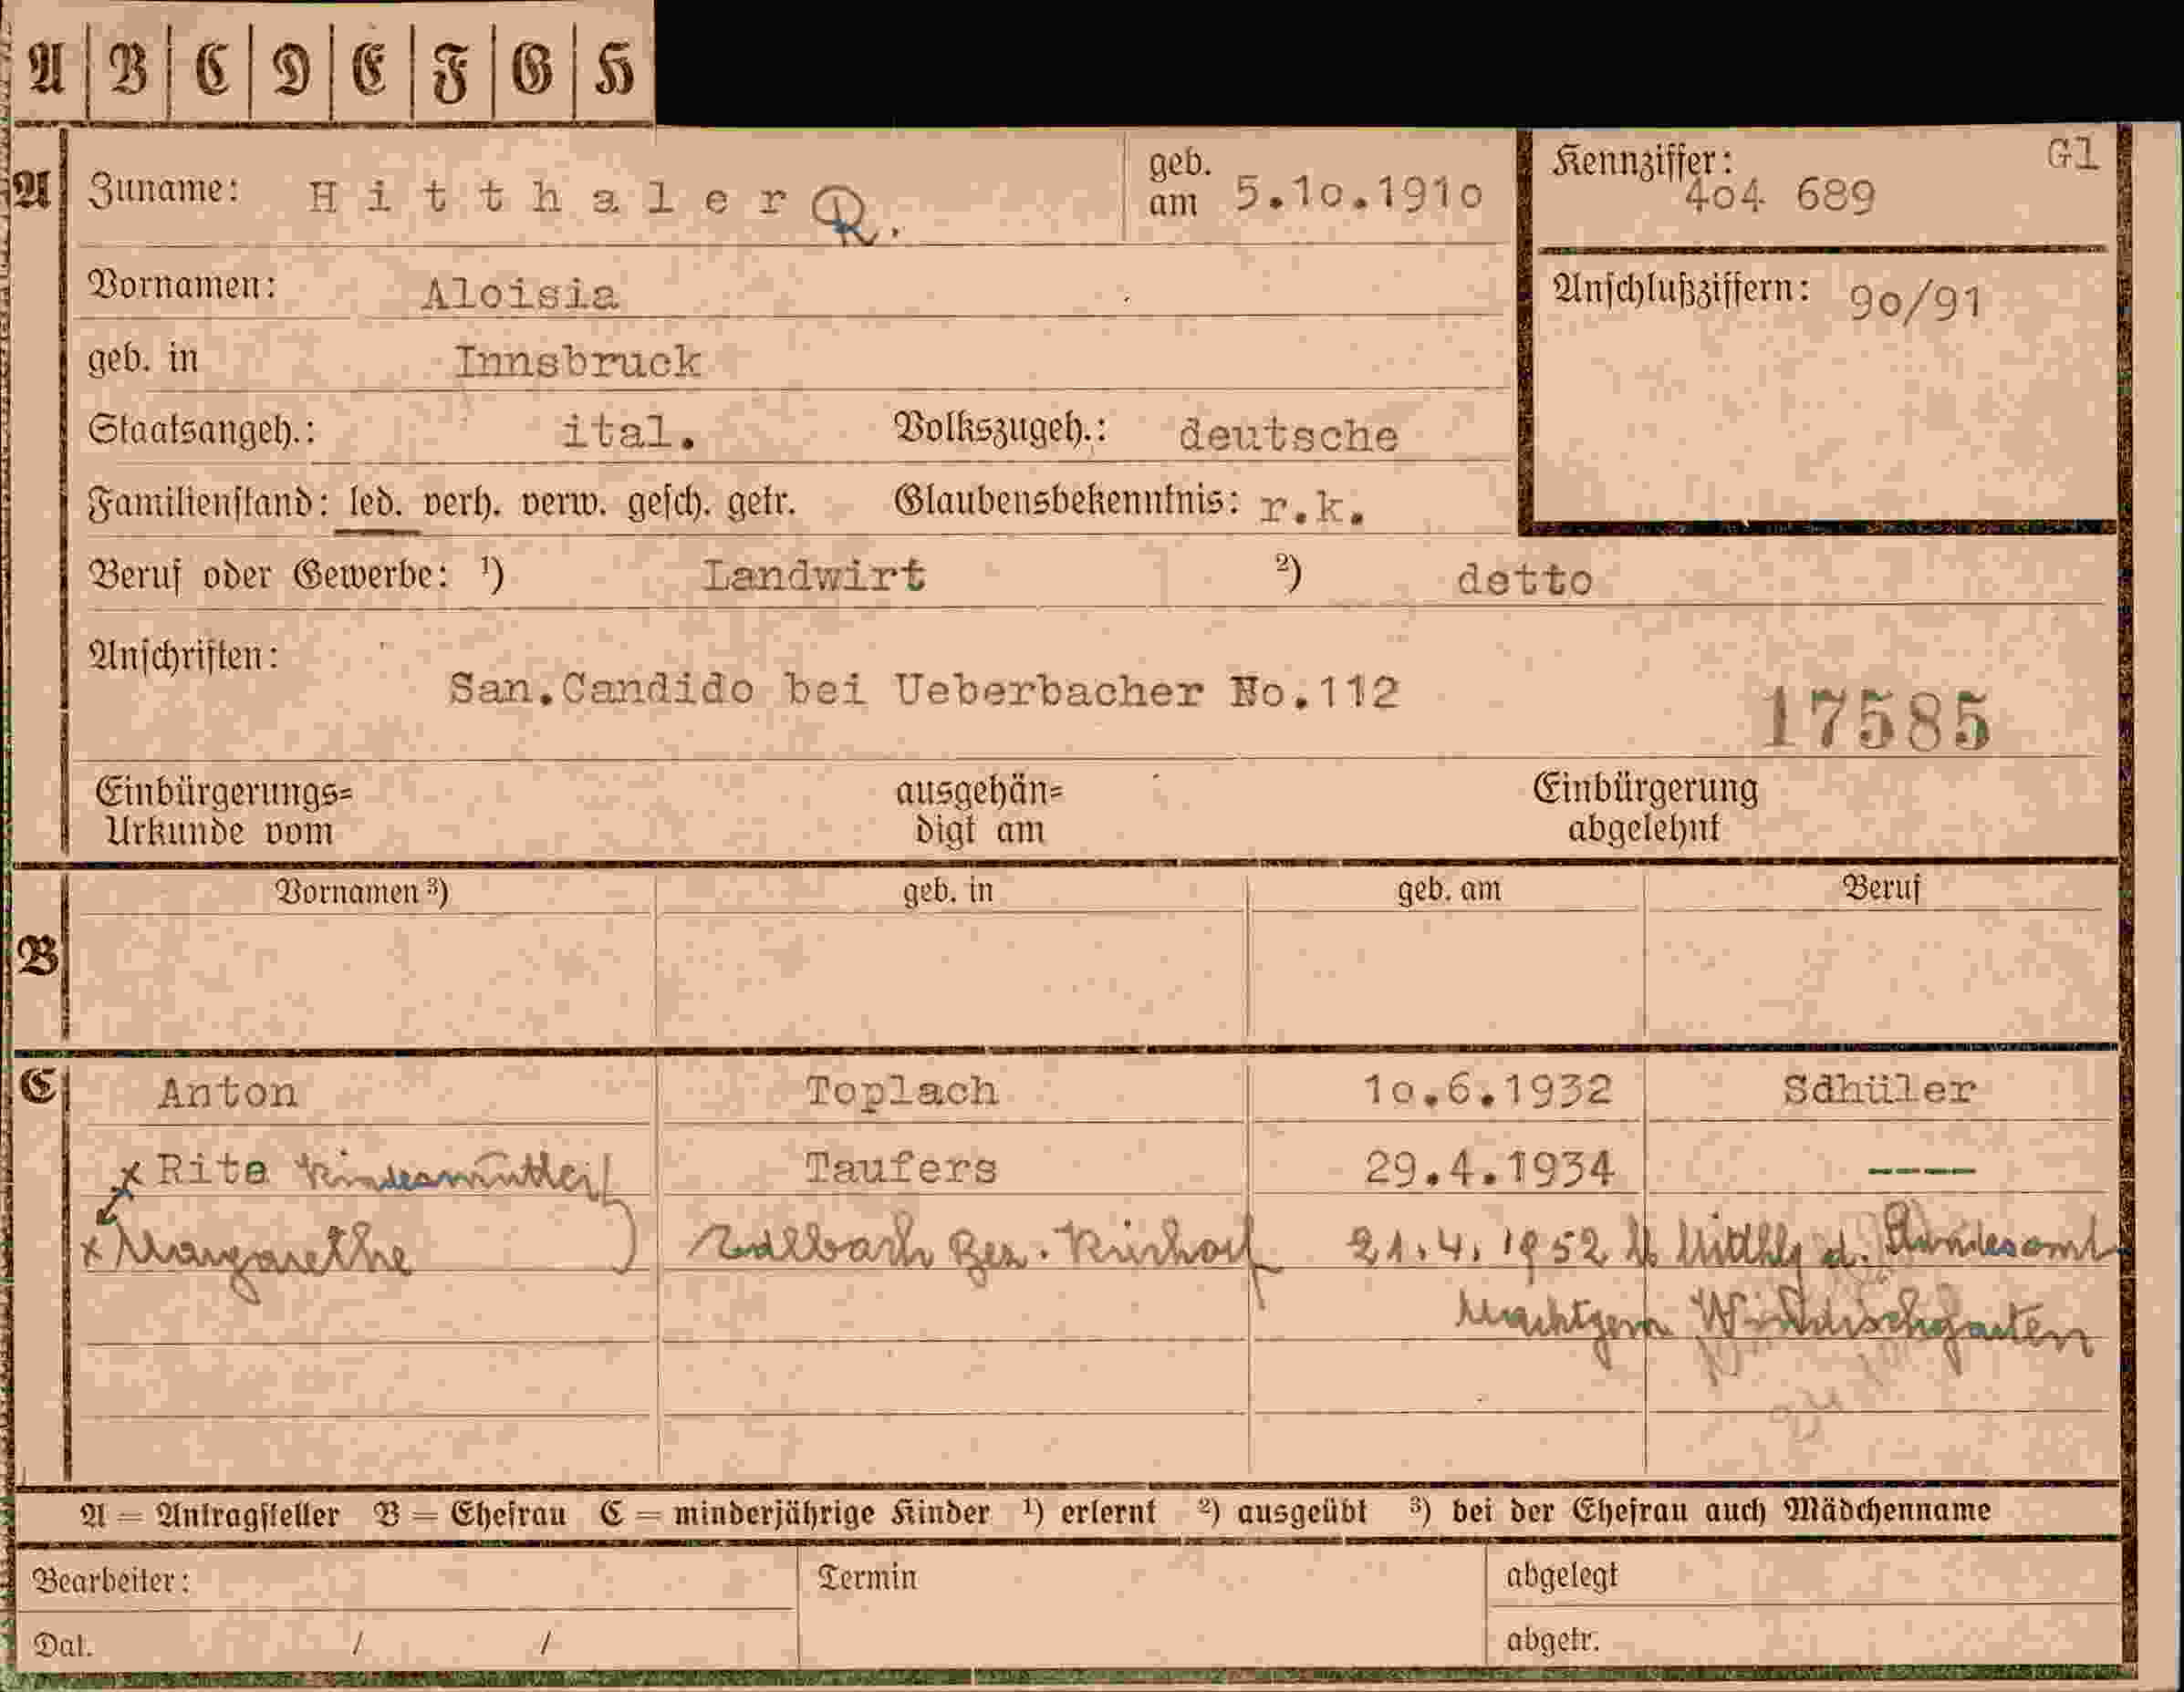 A | B | C | D | E | F | G | H
A Zuname: Hitthaler R. geb. am 5.10.1910 Kennziffer: 404 689 Gl
Vornamen: Aloisia Anschlußziffern: 90/91
geb. in Innsbruck
Staatsangeh.: ital. Volkszugeh.: deutsche
Familienstand: led. verh. verw. gesch. getr. Glaubensbekenntnis: r.k.
Beruf oder Gewerbe: ¹) Landwirt ²) detto
Anschriften:
San.Candido bei Ueberbacher No.112
17585
Einbürgerungs= Urkunde vom ausgehän= digt am Einbürgerung abgelehnt
Vornamen ³) geb. in geb. am Beruf
B
C Anton Toplach 10.6.1932 Sdhüler
x Rita Kindesmutter Taufers 29.4.1934 ----
x Margarethe Bez. 21.4.1952 d. Standesamt
Windischgarsten
A = Antragsteller B = Ehefrau C = minderjährige Kinder ¹) erlernt ²) ausgeübt ³) bei der Ehefrau auch Mädchenname
Bearbeiter: Termin abgelegt
Dat. / / abgetr.